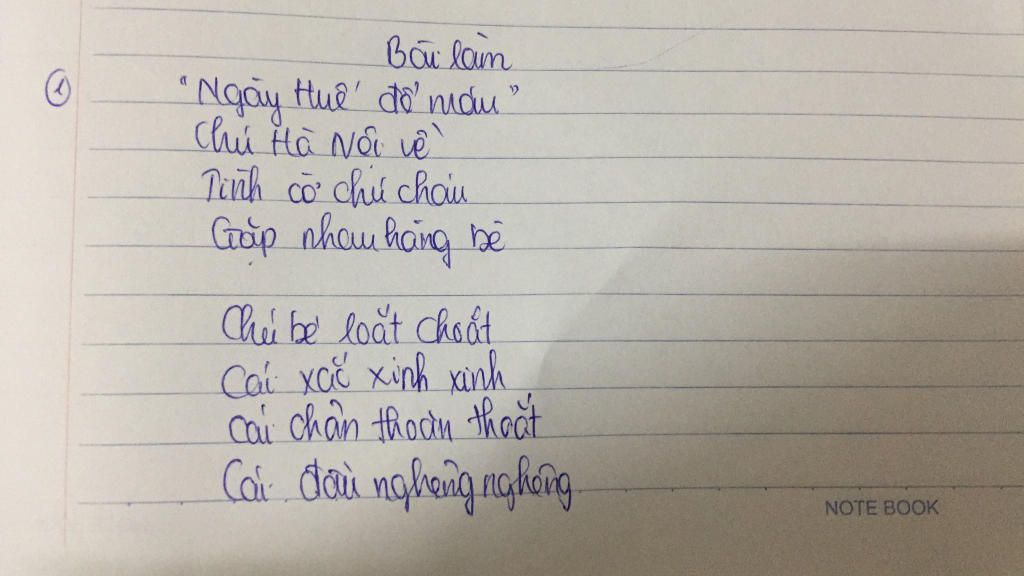 Bài làm
① "Ngày Huế đổ máu"
Chú Hà Nội về
Tình cờ chú cháu
Gặp nhau hàng bè
Chú bé loắt choắt
Cái xắc xinh xinh
Cái chân thoăn thoắt
Cái đầu nghênh nghênh
NOTE BOOK